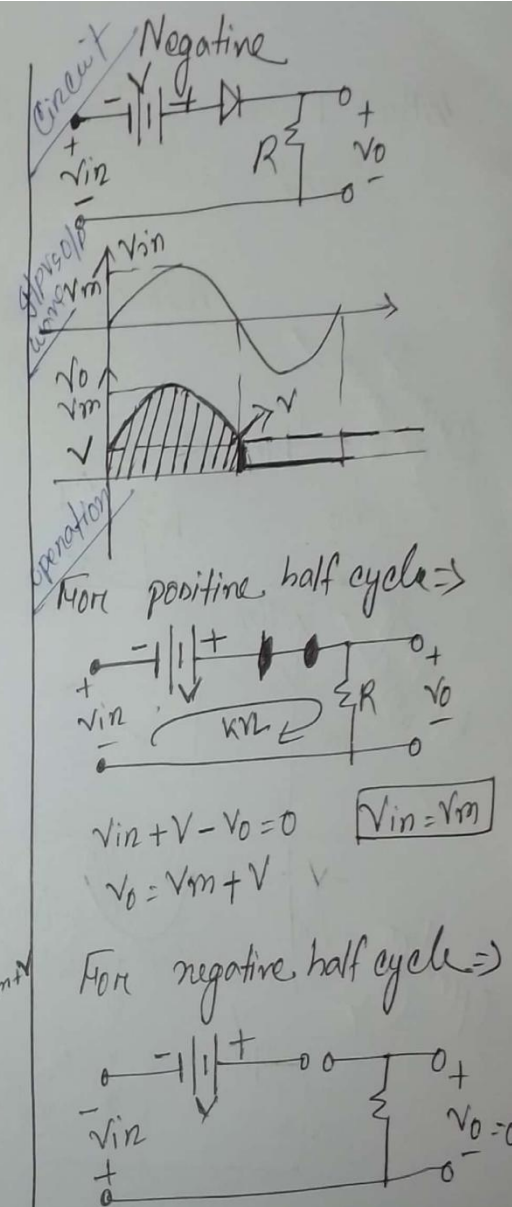 Circuit
Negative
V
- +
+
Vin
-
R
+
Vo
-
Vin
Vm
Vo
Vm
V
V
operation
For positive half cycle ⇒
- +
+
Vin
-
KVL
R
+
Vo
-
Vin + V - Vo = 0
Vin = Vm
Vo = Vm + V
For negative half cycle ⇒
- +
-
Vin
+
+
Vo = 0
-